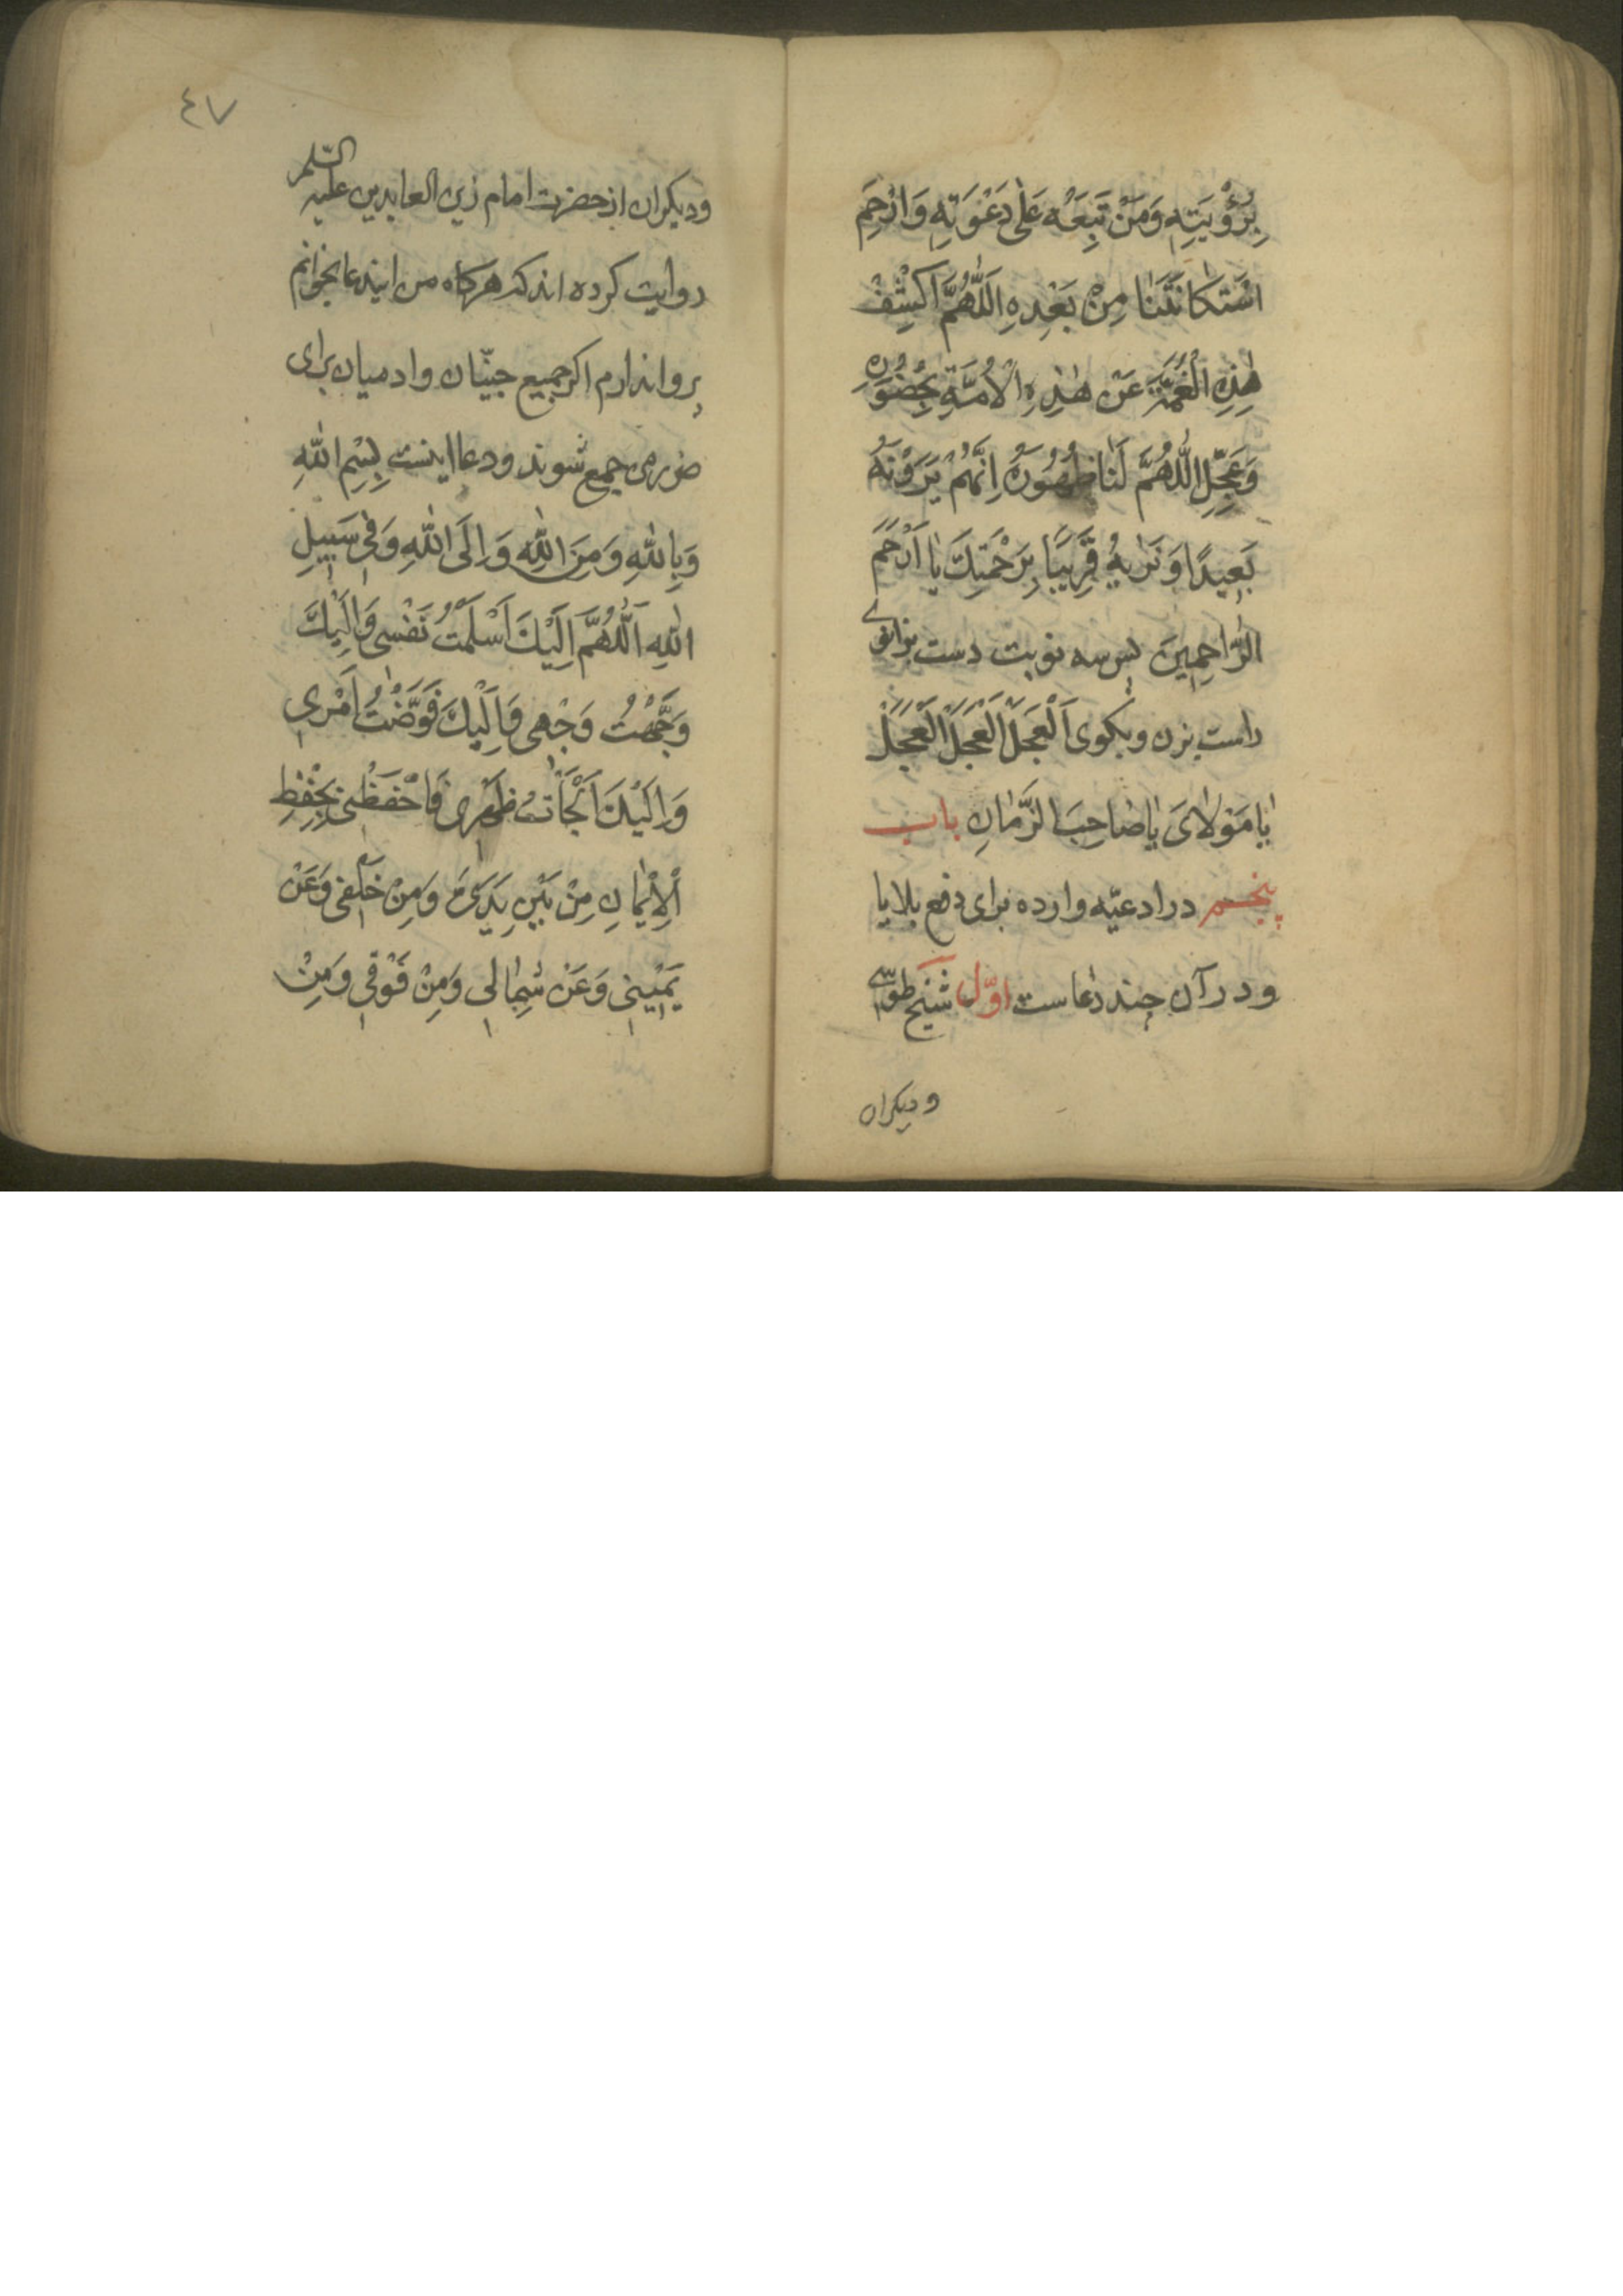 بِرُؤْيَتِهِ وَمَنْ تَبِعَهُ عَلٰى دَعْوَتِهِ وَارْحَمِ
اسْتِكَانَتَنَا مِنْ بَعْدِهِ اَللّٰهُمَّ اكْشِفْ
هٰذِهِ الْغُمَّةَ عَنْ هٰذِهِ الْاُمَّةِ بِحُضُورِهِ
وَعَجِّلِ اللّٰهُمَّ لَنَا ظُهُورَهُ اِنَّهُمْ يَرَوْنَهُ
بَعِيدًا وَنَرٰيهُ قَرِيبًا بِرَحْمَتِكَ يٰا اَرْحَمَ
الرّٰاحِمِينَ پس سه نوبت دست برانوی
راست بزن وبکوی اَلْعَجَلْ اَلْعَجَلْ اَلْعَجَلْ
يٰا مَوْلٰاىَ يٰا صٰاحِبَ الزَّمٰانِ باب
پنجم در ادعیّه وارده برای دفع بلایا
و در آن چند دعاست اوّل شیخ طوسی
و دیکران
٤٧
ودیکران از حضرت امام زین العابدین علیه السّلم
روایت کرده اند که هرکاه من ایندعا بخوانم
پروا ندارم اکر جمیع جنّیان وادمیان برای
ضرر من جمع شوند ودعا اینست بِسْمِ اللّٰهِ
وَبِاللّٰهِ وَمِنَ اللّٰهِ وَاِلَى اللّٰهِ وَفِى سَبِيلِ
اللّٰهِ اَللّٰهُمَّ اِلَيْكَ اَسْلَمْتُ نَفْسِى وَاِلَيْكَ
وَجَّهْتُ وَجْهِى وَاِلَيْكَ فَوَّضْتُ اَمْرِى
وَاِلَيْكَ اَلْجَأْتُ ظَهْرِى فَاحْفَظْنِى بِحِفْظِ
الْاِيمٰانِ مِنْ بَيْنِ يَدَىَّ وَمِنْ خَلْفِى وَعَنْ
يَمِينِى وَعَنْ شِمٰالِى وَمِنْ فَوْقِى وَمِنْ